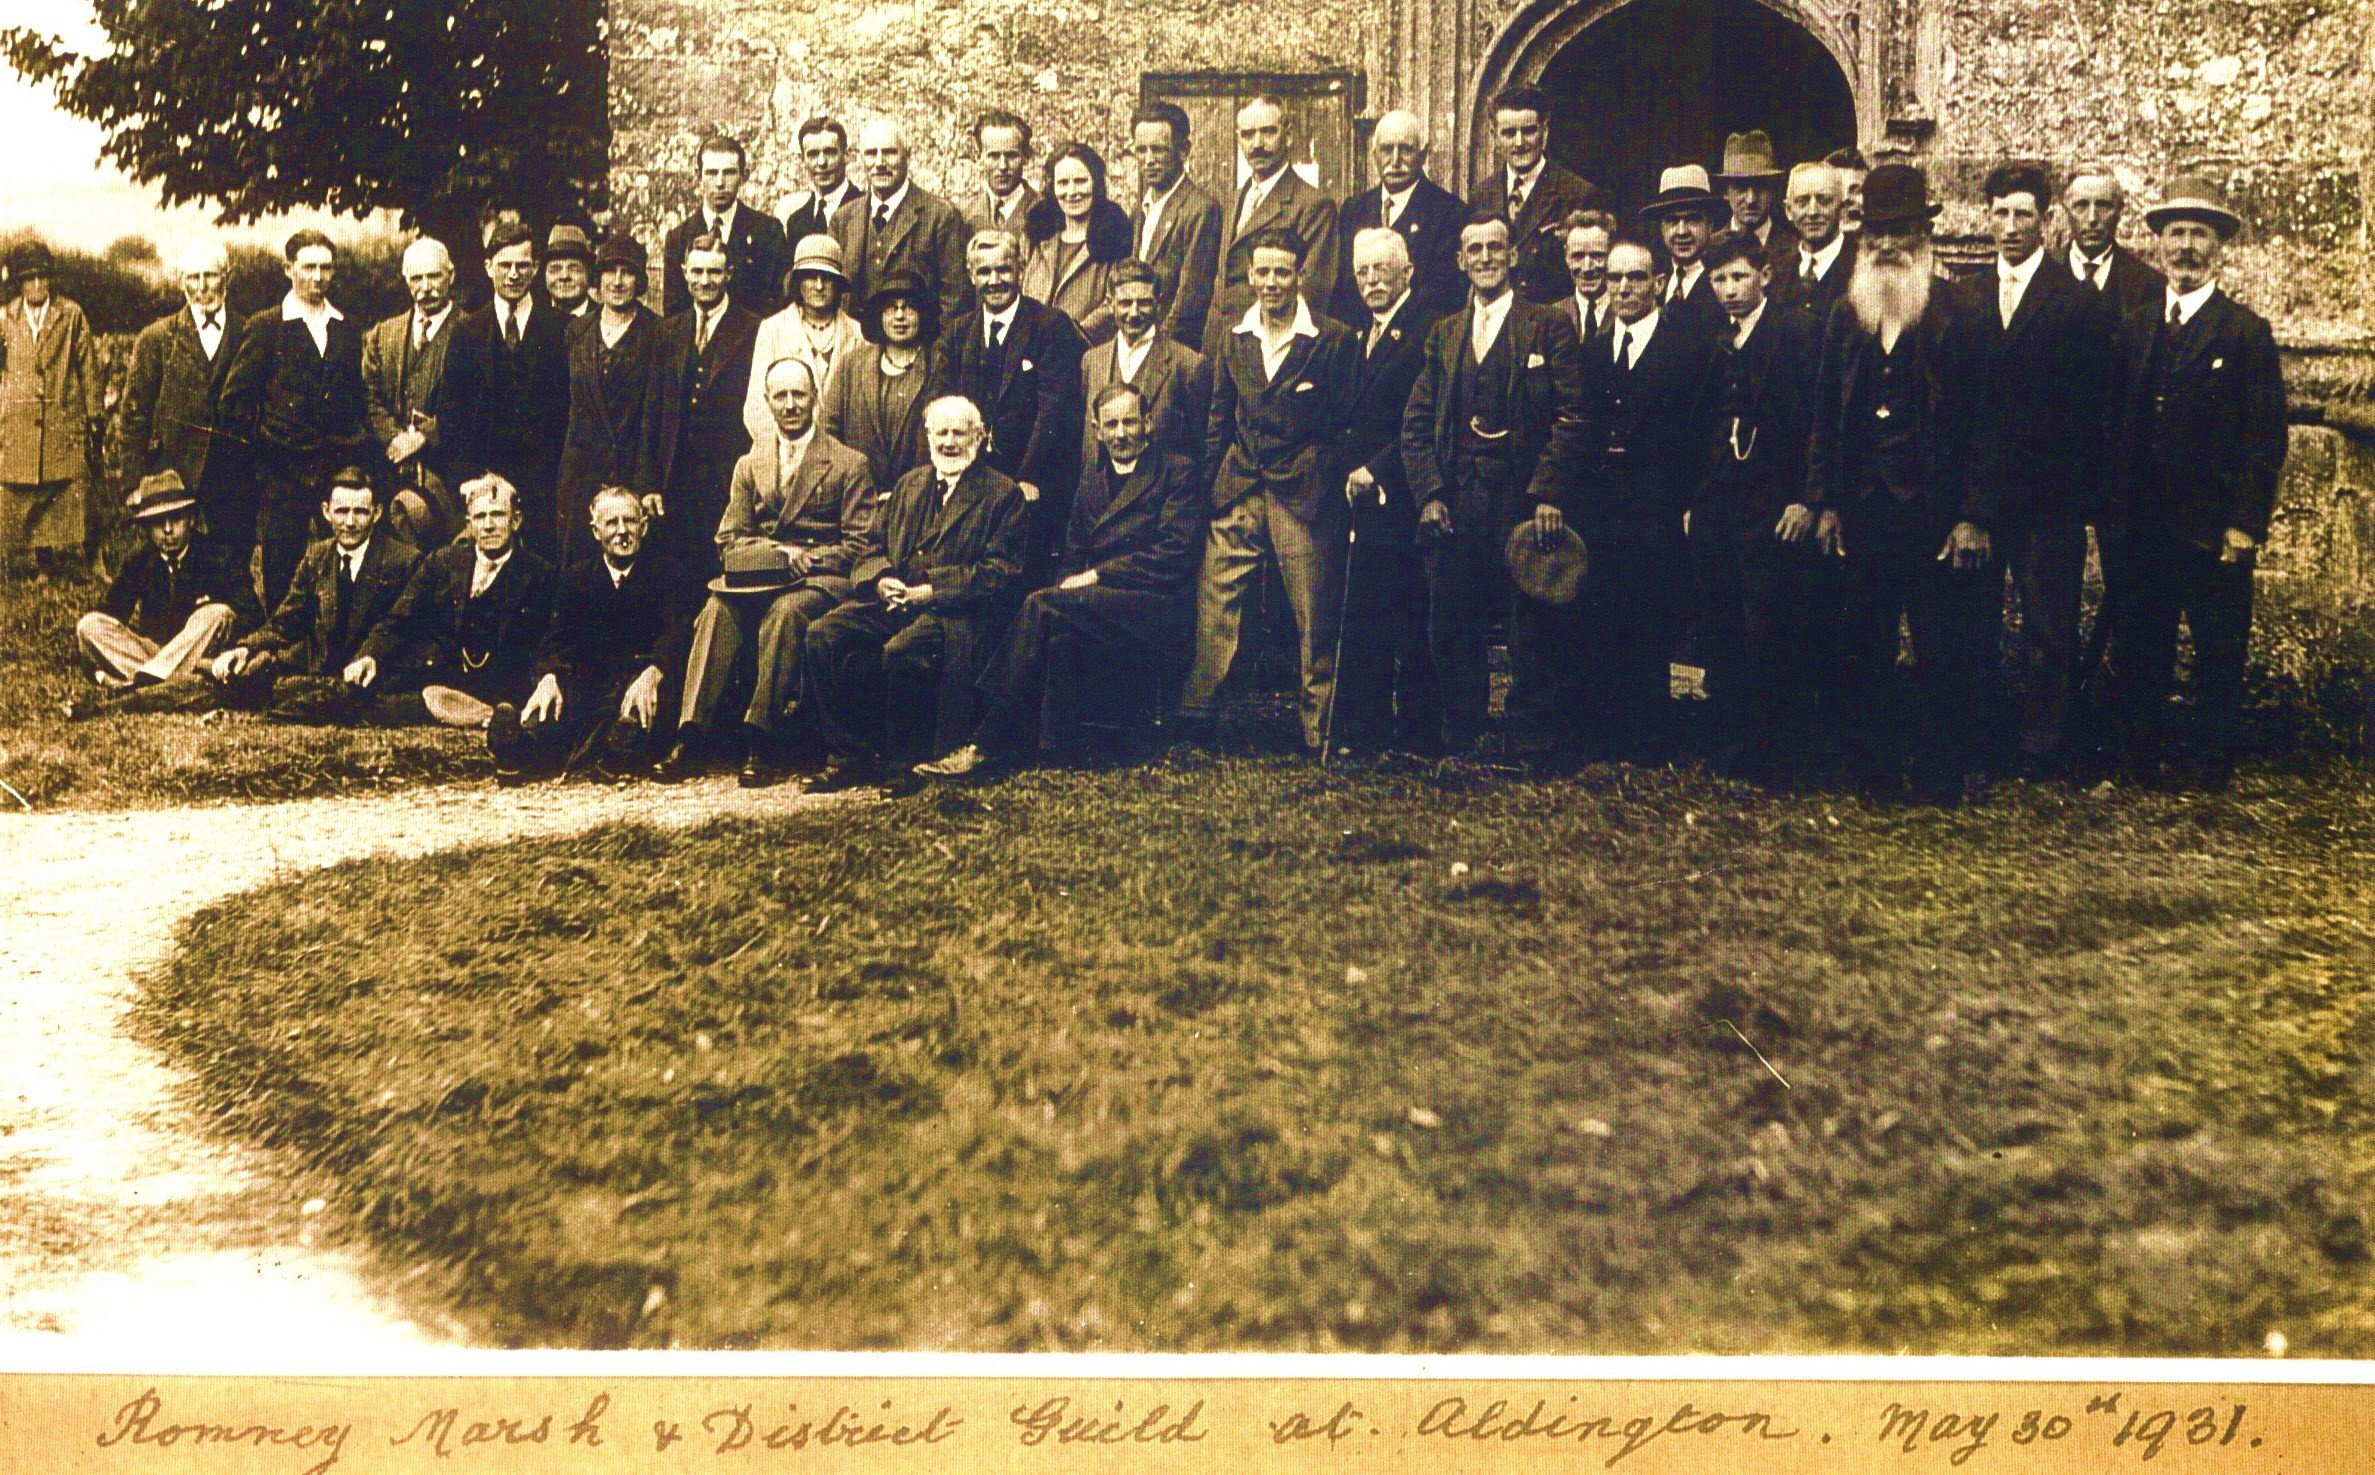 Romney Marsh & District Guild at. Aldington. May 30th 1931.